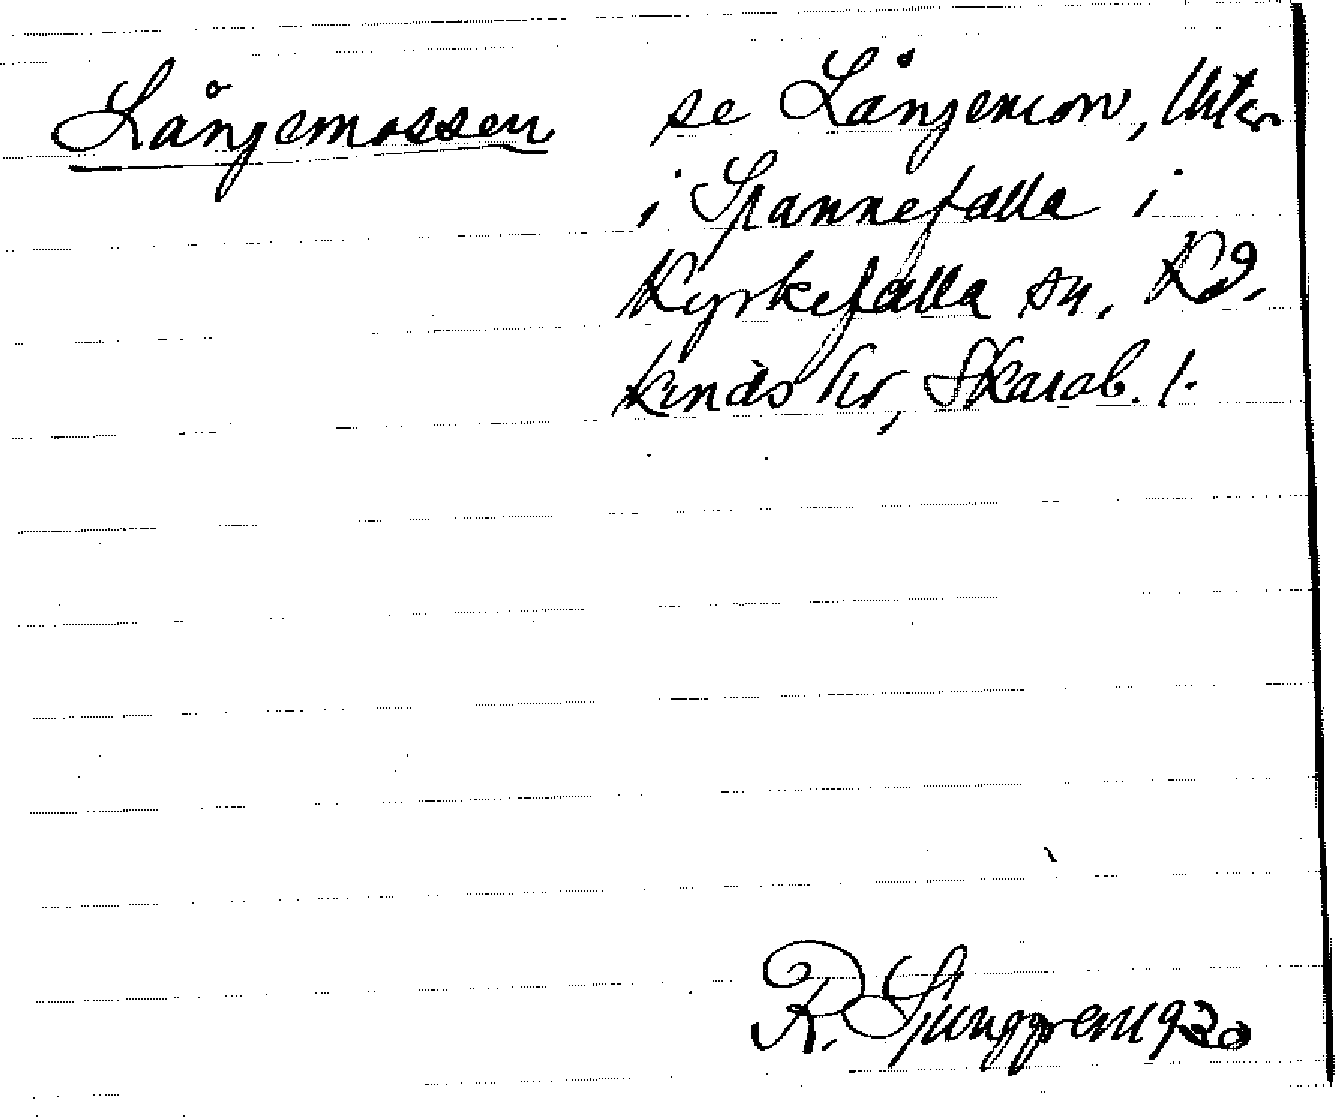 Långemossen se Långemon,
i Spannefalla i
Kyrkefalla sn, Kå-
kinds hd, Skarab. l.
R. Ljunggren 1920